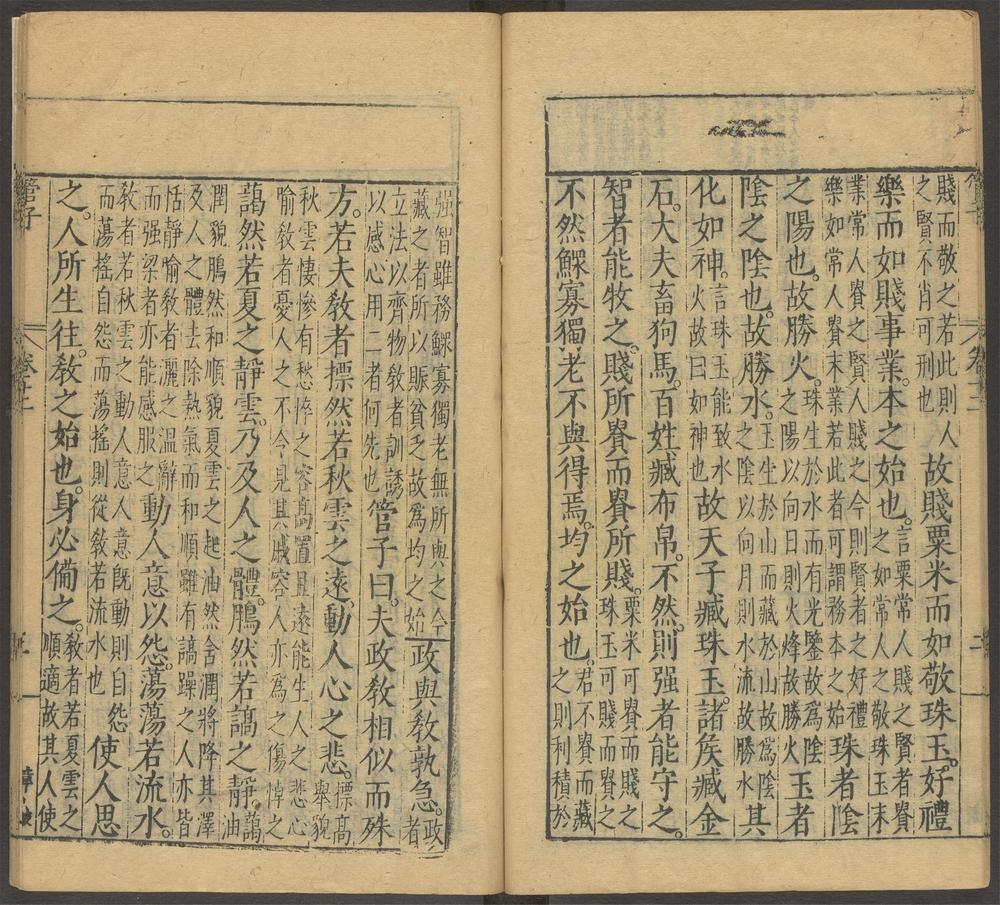 賤而敬之若此則人
之賢不肖可刑也
故賤粟米而如敬珠玉。好禮
樂而如賤事業。本之始也。
言粟常人賤之賢者貴
之如常人之敬珠玉末
業常人貴之賢人賤之今則賢者之好禮
樂如常人貴末業若此者可謂務本之始
珠者陰
之陽也。故勝火。
珠生於水而有光鑒故爲陰
之陽以向日則火烽故勝火
玉者
陰之陰也。故勝水。
玉生於山而藏於山故爲陰
之陰以向月則水流故勝水
其
化如神。
言珠玉能致水
火故曰如神也
故天子臧珠玉。諸矦臧金
石。大夫畜狗馬。百姓臧布帛。不然。則强者能守之。
智者能牧之。賤所貴而貴所賤。
粟米可貴而賤之
珠玉可賤而貴之
不然鰥寡獨老不與得焉。均之始也。
君不貴而藏
之則利積於
强智雖務鰥寡獨老無所與之今
藏之者所以賑貧乏故爲均之始
政與敎孰急。
政
者
立法以齊物敎者訓誘
以感心用二者何先也
管子曰。夫政敎相似而殊
方。若夫敎者摽然若秋雲之遠。動人心之悲。
摽高
舉貌
秋雲悽慘有愁悴之容高置且遠能生人之悲心
喻敎者憂人之不令見其戚容人亦爲之傷悼之
藹然若夏之靜雲。乃及人之體。鵩然若謞之靜。
藹
油
潤貌鵩然和順貌夏雲之起油然含潤將降其澤
及人之體去除熱氣而和順雖有謞躁之人亦皆
恬靜喻敎者灑之溫辭
而强梁者亦能感服之
動人意以怨。蕩蕩若流水。
敎者若秋雲之動人意人意旣動則自怨
而蕩搖自怨而蕩搖則從敎若流水也
使人思
之。人所生往。敎之始也。身必備之。
敎者若夏雲之
順適故其人使
管子
卷十二